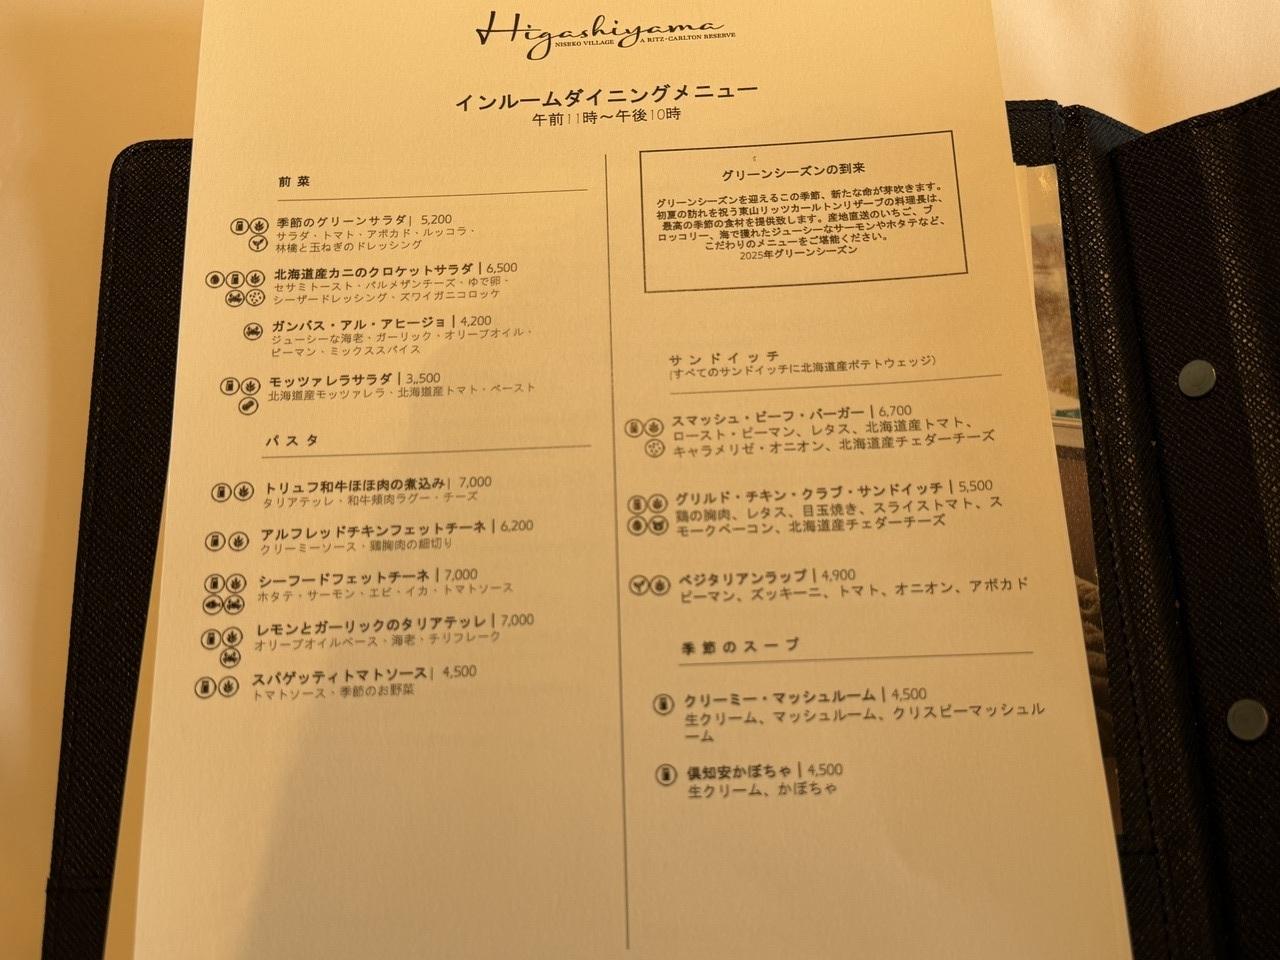 Higashiyama
NISEKO VILLAGE A RITZ-CARLTON RESERVE
インルームダイニングメニュー
午前11時～午後10時
前菜
季節のグリーンサラダ| 5,200
サラダ・トマト・アボカド・ルッコラ・
林檎と玉ねぎのドレッシング
北海道産カニのクロケットサラダ | 6,500
セサミトースト・パルメザンチーズ・ゆで卵・
シーザードレッシング・ズワイガニコロッケ
ガンバス・アル・アヒージョ | 4,200
ジューシーな海老・ガーリック・オリーブオイル・
ピーマン・ミックススパイス
モッツァレラサラダ | 3,,500
北海道産モッツァレラ・北海道産トマト・ペースト
パスタ
トリュフ和牛ほほ肉の煮込み| 7,000
タリアテッレ・和牛頬肉ラグー・チーズ
アルフレッドチキンフェットチーネ | 6,200
クリーミーソース・鶏胸肉の細切り
シーフードフェットチーネ | 7,000
ホタテ・サーモン・エビ・イカ・トマトソース
レモンとガーリックのタリアテッレ | 7,000
オリーブオイルベース・海老・チリフレーク
スパゲッティトマトソース| 4,500
トマトソース・季節のお野菜
グリーンシーズンの到来
グリーンシーズンを迎えるこの季節、新たな命が芽吹きます。
初夏の訪れを祝う東山リッツカールトンリザーブの料理長は、
最高の季節の食材を提供致します。産地直送のいちご、ブ
ロッコリー、海で獲れたジューシーなサーモンやホタテなど、
こだわりのメニューをご堪能ください。
2025年グリーンシーズン
サンドイッチ
(すべてのサンドイッチに北海道産ポテトウェッジ)
スマッシュ・ビーフ・バーガー | 6,700
ロースト・ピーマン、レタス、北海道産トマト、
キャラメリゼ・オニオン、北海道産チェダーチーズ
グリルド・チキン・クラブ・サンドイッチ | 5,500
鶏の胸肉、レタス、目玉焼き、スライストマト、ス
モークベーコン、北海道産チェダーチーズ
ベジタリアンラップ | 4,900
ピーマン、ズッキーニ、トマト、オニオン、アボカド
季節のスープ
クリーミー・マッシュルーム | 4,500
生クリーム、マッシュルーム、クリスピーマッシュル
ーム
倶知安かぼちゃ | 4,500
生クリーム、かぼちゃ